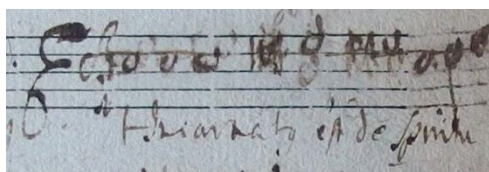 et Incarnatus est de spiritu